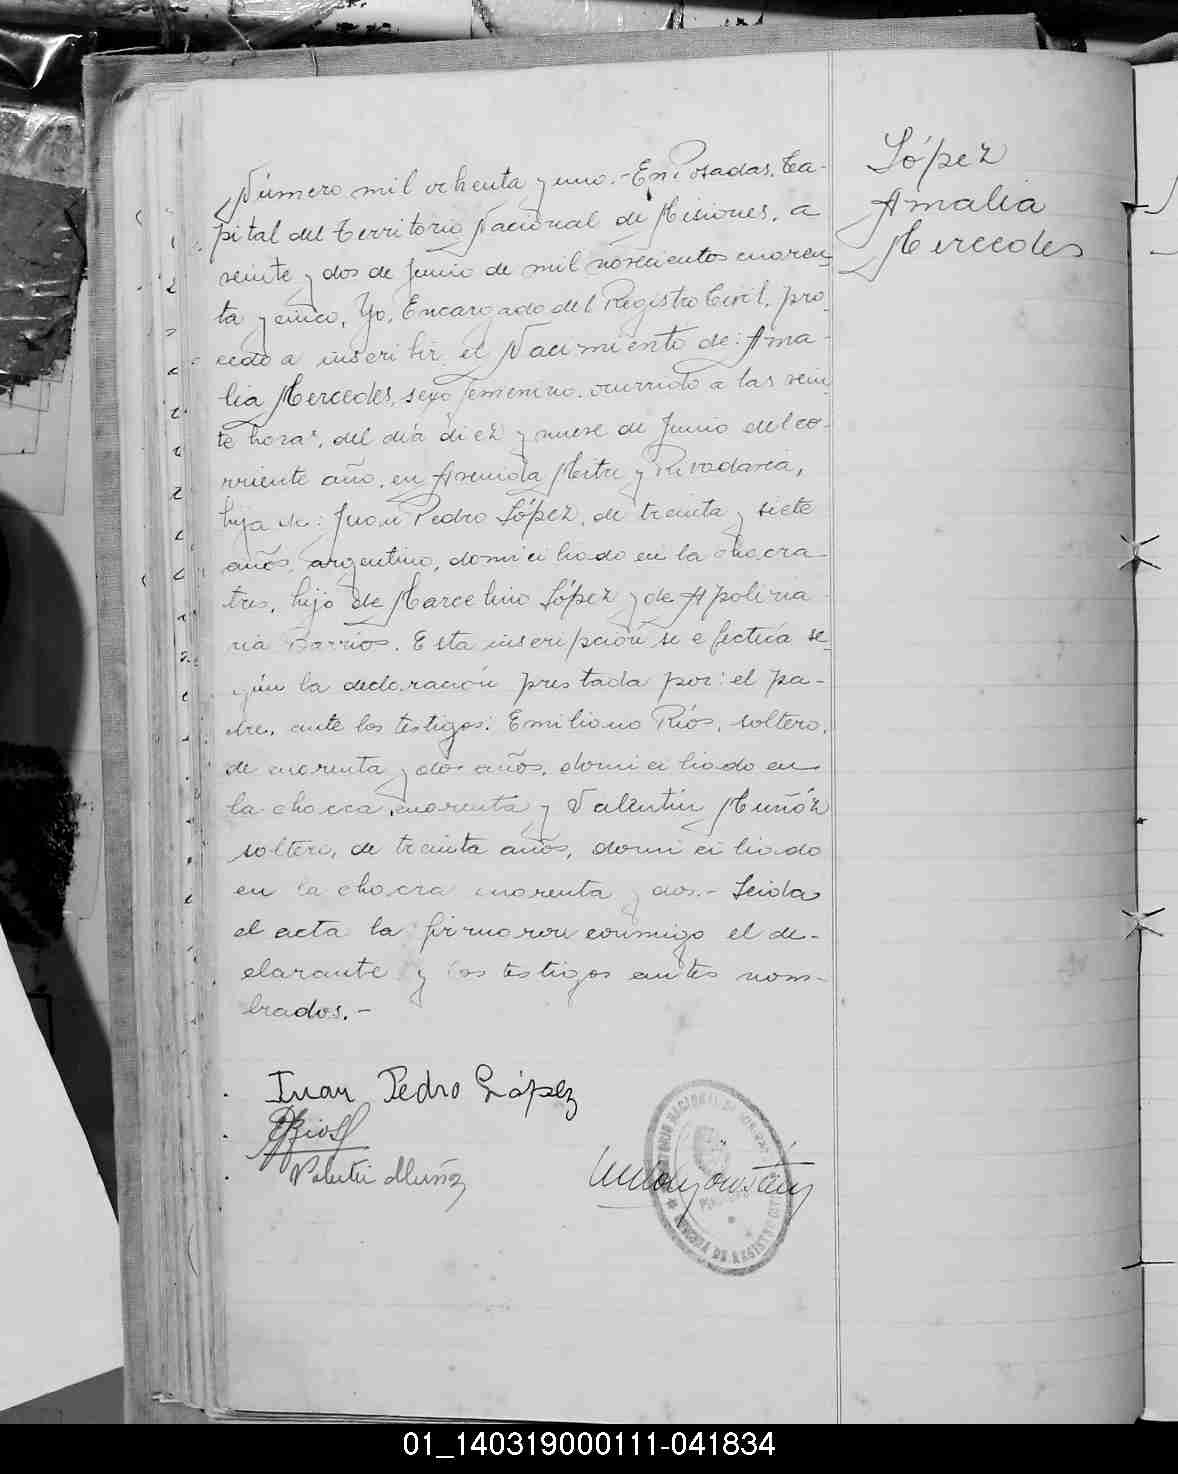 López
Amalia
Mercedes
Número mil ochenta y uno.- En Posadas, Ca-
pital del Territorio Nacional de Misiones, a
veinte y dos de Junio de mil novecientos cuaren
ta y cinco, Yo, Encargado del Registro Civil, pro
cedo a inscribir el Nacimiento de: Ama-
lia Mercedes, sexo femenino, ocurrido a las vein
te horas, del día diez y nueve de Junio del co-
rriente año, en Avenida Mitre y Rivadavia,
hija de: Juan Pedro López, de treinta y siete
años, argentino, domiciliado en la chacra
tres, hijo de Marcelino López y de Apolina
ria Barrios. Esta inscripción se efectúa se
gún la declaración prestada por: el pa-
dre, ante los testigos: Emiliano Ríos, soltero,
de cuarenta y dos años, domiciliado en
la chacra cuarenta y Valentín Muñóz
soltero, de treinta años, domiciliado
en la chacra cuarenta y dos.- Leida
el acta la firmaron conmigo el de-
clarante y los testigos antes nom-
brados.-
Juan Pedro López
ERios
Valentin Muñoz
TERRITORIO NACIONAL DE MISIONES
01_140319000111-041834